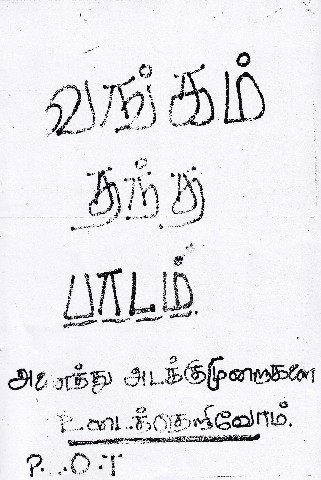 வங்கம்
தந்த
பாடம்
அனைத்து அடக்குமுறைகளை
உடைத்தெறிவோம்.
P...O.T